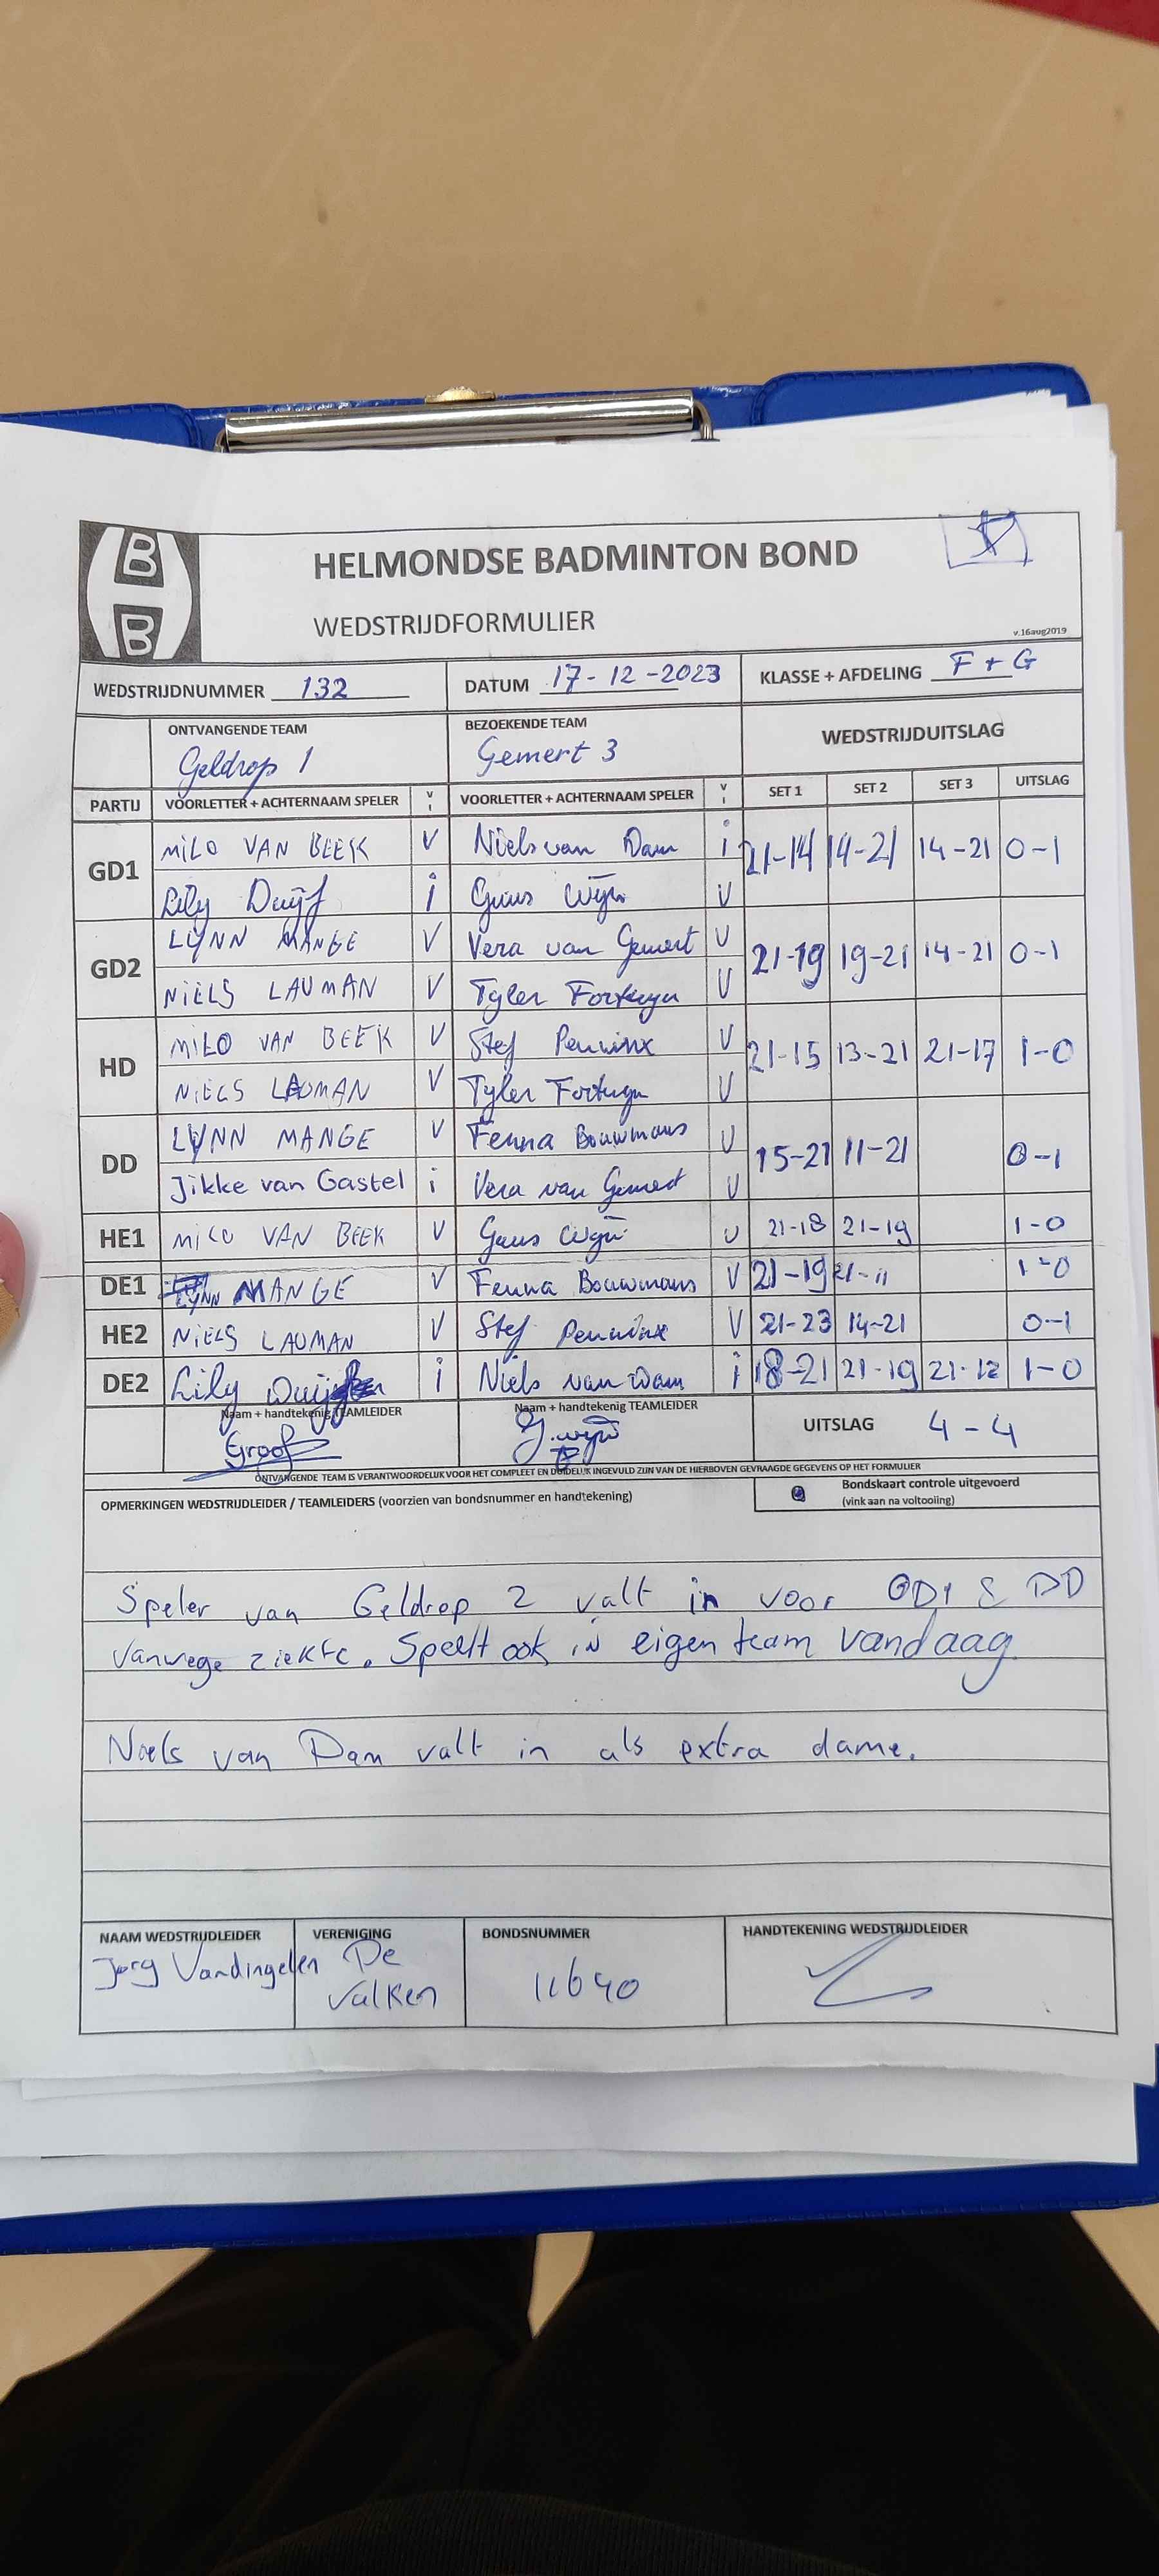 B
B
HELMONDSE BADMINTON BOND
WEDSTRIJDFORMULIER
v.16aug2019
WEDSTRIJDNUMMER 132 DATUM 17-12-2023 KLASSE + AFDELING F + G
ONTVANGENDE TEAM BEZOEKENDE TEAM WEDSTRIJDUITSLAG
Geldrop 1 Gemert 3
PARTIJ VOORLETTER + ACHTERNAAM SPELER V I VOORLETTER + ACHTERNAAM SPELER V I SET 1 SET 2 SET 3 UITSLAG
GD1 MILO VAN BEEK V Niels van Dam i 21-14 14-21 14-21 0-1
Lily Duijf i Guus Wijn V
GD2 LYNN MANGE V Vera van Gemert V 21-19 19-21 14-21 0-1
NIELS LAUMAN V Tyler Fortuyn V
HD MILO VAN BEEK V Stef Penninx V 21-15 13-21 21-17 1-0
NIELS LAUMAN V Tyler Fortuyn V
DD LYNN MANGE V Fenna Bouwmans V 15-21 11-21 0-1
Jikke van Gastel i Vera van Gemert V
HE1 MILO VAN BEEK V Guus Wijn V 21-18 21-19 1-0
DE1 LYNN MANGE V Fenna Bouwmans V 21-19 21-11 1-0
HE2 NIELS LAUMAN V Stef Penninx V 21-23 14-21 0-1
DE2 Lily i Niels van Dam i 18-21 21-19 21-12 1-0
Naam + handtekenig TEAMLEIDER Naam + handtekenig TEAMLEIDER UITSLAG 4-4
ONTVANGENDE TEAM IS VERANTWOORDELIJK VOOR HET COMPLEET EN DUIDELIJK INGEVULD ZIJN VAN DE HIERBOVEN GEVRAAGDE GEGEVENS OP HET FORMULIER
OPMERKINGEN WEDSTRIJDLEIDER / TEAMLEIDERS (voorzien van bondsnummer en handtekening) Bondskaart controle uitgevoerd
(vink aan na voltooiing)
Speler van Geldrop 2 valt in voor GD1 & DD
vanwege ziekte. Speelt ook in eigen team vandaag.
Niels van Dam valt in als extra dame.
NAAM WEDSTRIJDLEIDER VERENIGING BONDSNUMMER HANDTEKENING WEDSTRIJDLEIDER
Jorg Vandingelen De
Valken 11640